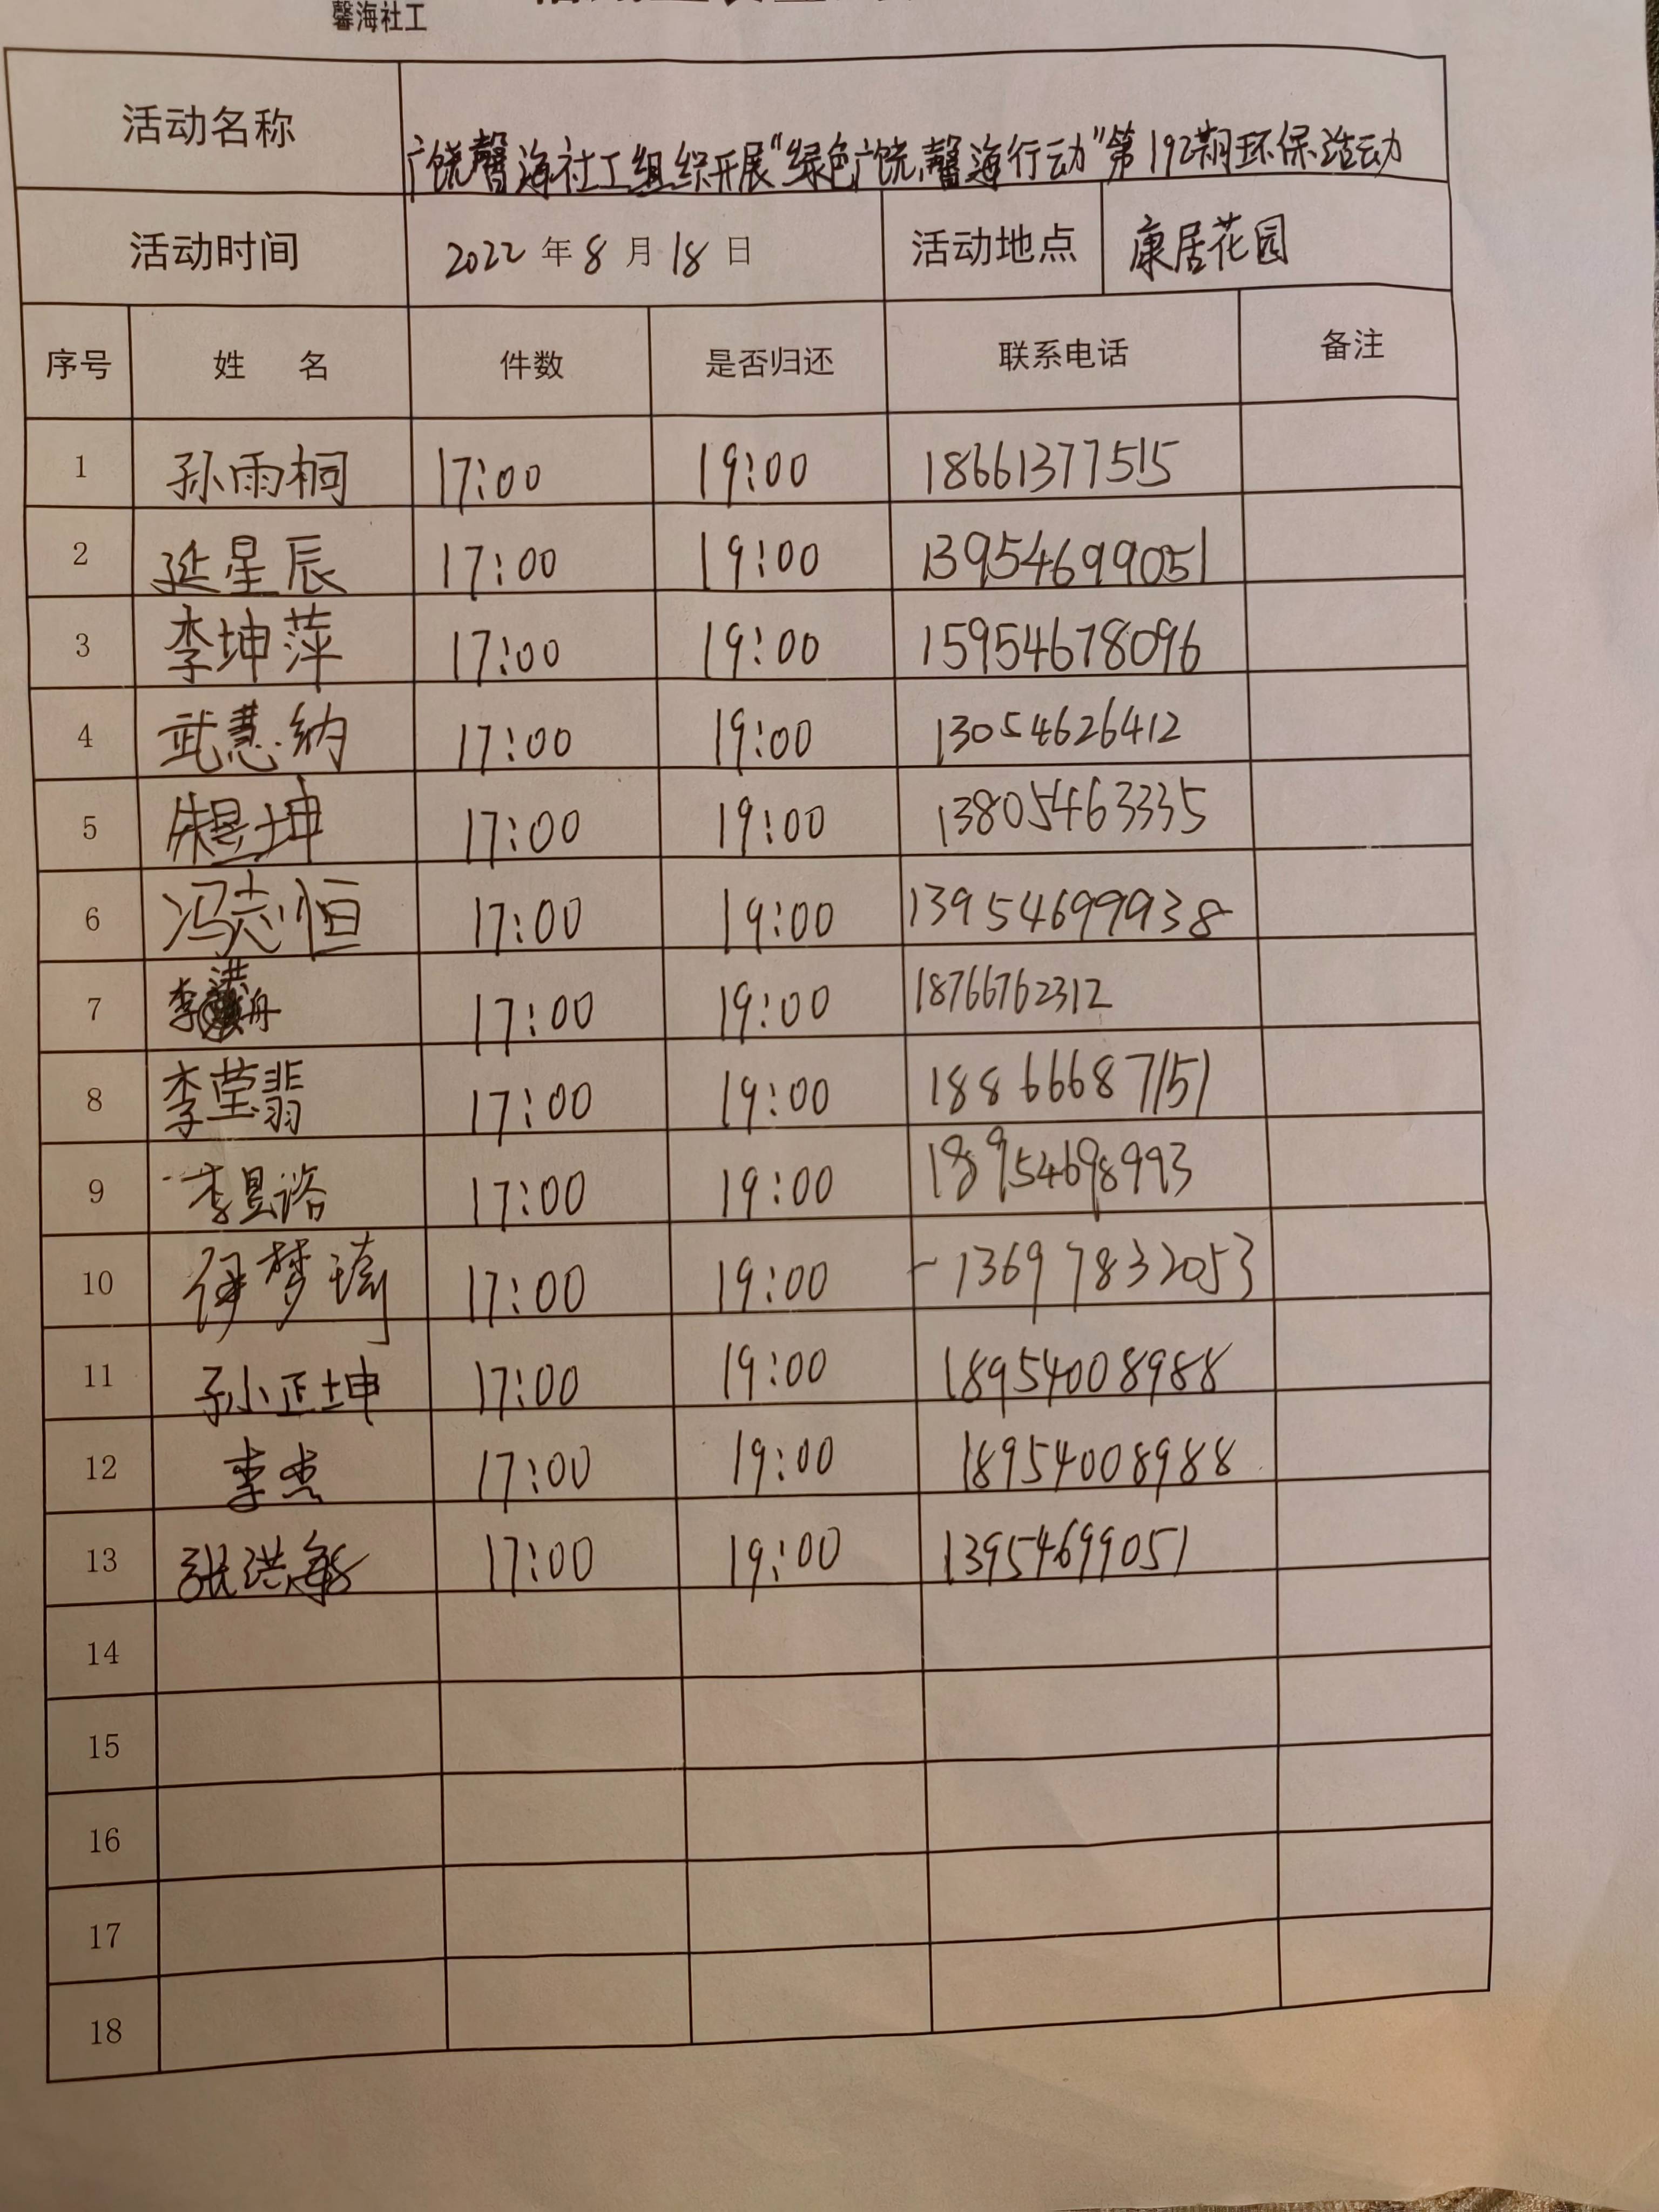 馨海社工
活动名称 广饶馨海社工组织开展“绿色广饶,馨海行动”第192期环保活动
活动时间 2022年8月18日 活动地点 康居花园
序号 姓 名 件数 是否归还 联系电话 备注
1 孙雨桐 17:00 19:00 18661377515
2 延星辰 17:00 19:00 13954699051
3 李坤萍 17:00 19:00 15954678096
4 武慧纳 17:00 19:00 13054626412
5 朱昱坤 17:00 19:00 13805463335
6 冯志恒 17:00 19:00 13954699938
7 李洪舟 17:00 19:00 18766762312
8 李莹翡 17:00 19:00 18866687151
9 李昱谘 17:00 19:00 18954698993
10 伊梦琦 17:00 19:00 13697832053
11 孙正坤 17:00 19:00 18954008988
12 李杰 17:00 19:00 18954008988
13 张洪敏 17:00 19:00 13954699051
14
15
16
17
18